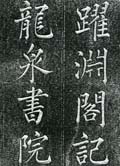 躍淵閣記
龍泉書院